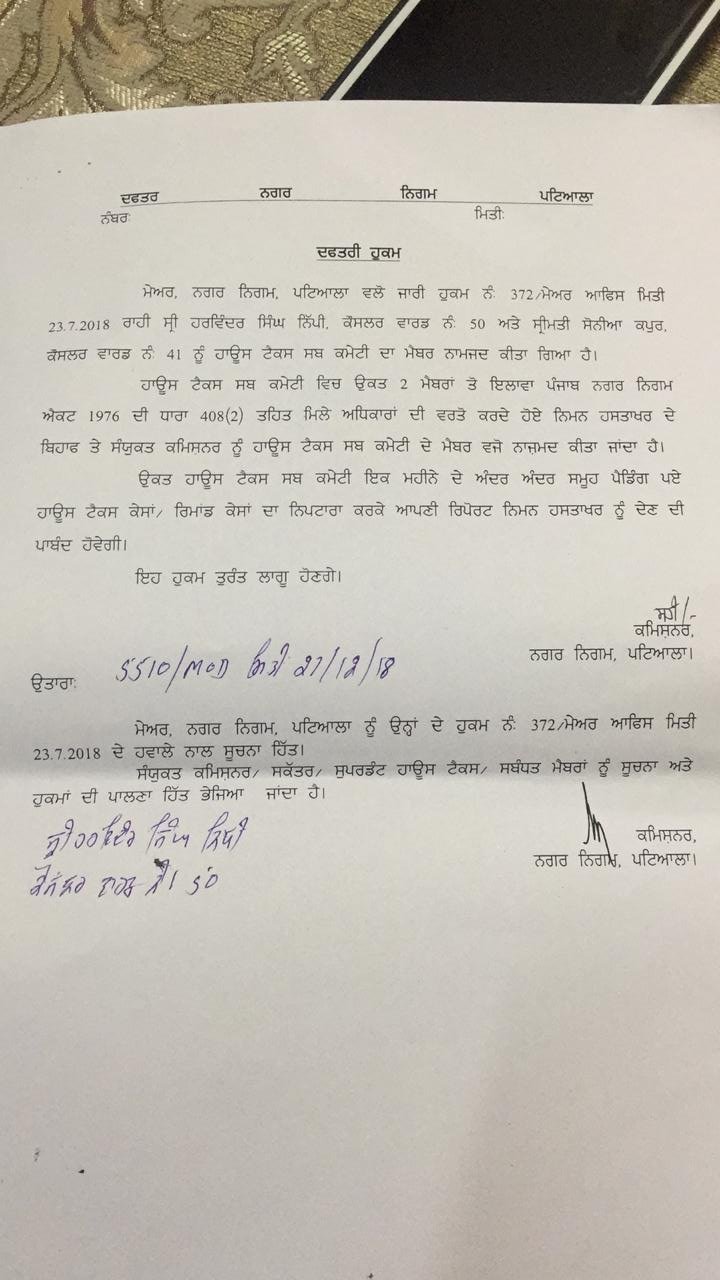 ਦਫਤਰ ਨਗਰ ਨਿਗਮ ਪਟਿਆਲਾ
ਨੰਬਰਃ ਮਿਤੀਃ
ਦਫਤਰੀ ਹੁਕਮ
ਮੇਅਰ, ਨਗਰ ਨਿਗਮ, ਪਟਿਆਲਾ ਵਲੋਂ ਜਾਰੀ ਹੁਕਮ ਨੰਃ 372/ਮੇਅਰ ਆਫਿਸ ਮਿਤੀ
23.7.2018 ਰਾਹੀ ਸ੍ਰੀ ਹਰਵਿੰਦਰ ਸਿੰਘ ਨਿੱਪੀ, ਕੌਂਸਲਰ ਵਾਰਡ ਨੰਃ 50 ਅਤੇ ਸ੍ਰੀਮਤੀ ਸੋਨੀਆ ਕਪੂਰ,
ਕੌਂਸਲਰ ਵਾਰਡ ਨੰਃ 41 ਨੂੰ ਹਾਊਸ ਟੈਕਸ ਸਬ ਕਮੇਟੀ ਦਾ ਮੈਬਰ ਨਾਮਜਦ ਕੀਤਾ ਗਿਆ ਹੈ।
ਹਾਊਸ ਟੈਕਸ ਸਬ ਕਮੇਟੀ ਵਿਚ ਉਕਤ 2 ਮੈਬਰਾਂ ਤੋ ਇਲਾਵਾ ਪੰਜਾਬ ਨਗਰ ਨਿਗਮ
ਐਕਟ 1976 ਦੀ ਧਾਰਾ 408(2) ਤਹਿਤ ਮਿਲੇ ਅਧਿਕਾਰਾਂ ਦੀ ਵਰਤੋ ਕਰਦੇ ਹੋਏ ਨਿਮਨ ਹਸਤਾਖਰ ਦੇ
ਬਿਹਾਫ ਤੇ ਸੰਯੁਕਤ ਕਮਿਸ਼ਨਰ ਨੂੰ ਹਾਊਸ ਟੈਕਸ ਸਬ ਕਮੇਟੀ ਦੇ ਮੈਬਰ ਵਜੋ ਨਾਜ਼ਮਦ ਕੀਤਾ ਜਾਂਦਾ ਹੈ।
ਉਕਤ ਹਾਊਸ ਟੈਕਸ ਸਬ ਕਮੇਟੀ ਇਕ ਮਹੀਨੇ ਦੇ ਅੰਦਰ ਅੰਦਰ ਸਮੂਹ ਪੈਡਿੰਗ ਪਏ
ਹਾਊਸ ਟੈਕਸ ਕੇਸਾਂ/ ਰਿਮਾਂਡ ਕੇਸਾਂ ਦਾ ਨਿਪਟਾਰਾ ਕਰਕੇ ਆਪਣੀ ਰਿਪੋਰਟ ਨਿਮਨ ਹਸਤਾਖਰ ਨੂੰ ਦੇਣ ਦੀ
ਪਾਬੰਦ ਹੋਵੇਗੀ।
ਇਹ ਹੁਕਮ ਤੁਰੰਤ ਲਾਗੂ ਹੋਣਗੇ।
ਸਹੀ/-
ਕਮਿਸ਼ਨਰ,
ਨਗਰ ਨਿਗਮ, ਪਟਿਆਲਾ।
ਉਤਾਰਾਃ 5510/MOD ਮਿਤੀ 27/12/18
ਮੇਅਰ, ਨਗਰ ਨਿਗਮ, ਪਟਿਆਲਾ ਨੂੰ ਉਨ੍ਹਾਂ ਦੇ ਹੁਕਮ ਨੰਃ 372/ਮੇਅਰ ਆਫਿਸ ਮਿਤੀ
23.7.2018 ਦੇ ਹਵਾਲੇ ਨਾਲ ਸੂਚਨਾ ਹਿੱਤ।
ਸੰਯੁਕਤ ਕਮਿਸ਼ਨਰ/ ਸਕੱਤਰ/ ਸੁਪਰਡੰਟ ਹਾਊਸ ਟੈਕਸ/ ਸਬੰਧਤ ਮੈਬਰਾਂ ਨੂੰ ਸੂਚਨਾ ਅਤੇ
ਹੁਕਮਾਂ ਦੀ ਪਾਲਣਾ ਹਿੱਤ ਭੇਜਿਆ ਜਾਂਦਾ ਹੈ।
ਕਮਿਸ਼ਨਰ,
ਨਗਰ ਨਿਗਮ, ਪਟਿਆਲਾ।
ਸ੍ਰੀ ਹਰਵਿੰਦਰ ਸਿੰਘ ਨਿੱਪੀ
ਕੌਂਸਲਰ ਵਾਰਡ ਨੰ। 50